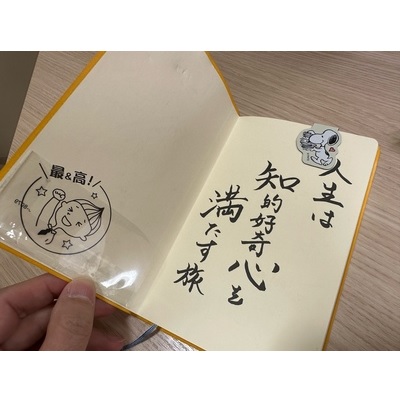 最&高!
人生は
知的好奇心を
満たす旅